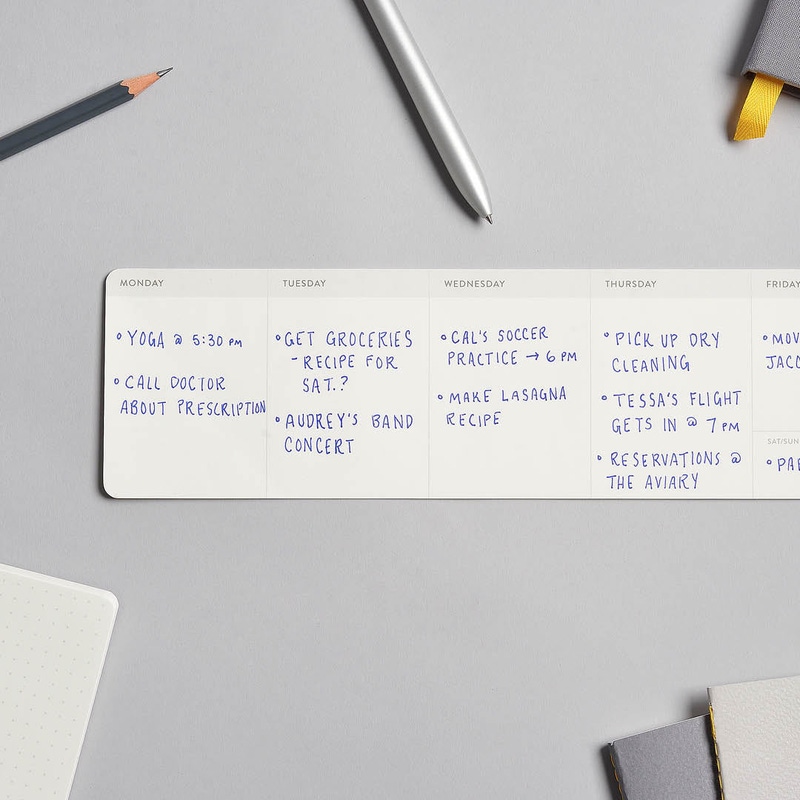 MONDAY
° YOGA @ 5:30 PM
° CALL DOCTOR
ABOUT PRESCRIPTION
TUESDAY
° GET GROCERIES
- RECIPE FOR
SAT.?
° AUDREY'S BAND
CONCERT
WEDNESDAY
° CAL'S SOCCER
PRACTICE → 6 PM
° MAKE LASAGNA
RECIPE
THURSDAY
° PICK UP DRY
CLEANING
° TESSA'S FLIGHT
GETS IN @ 7 PM
° RESERVATIONS @
THE AVIARY
FRIDAY
SAT/SUN